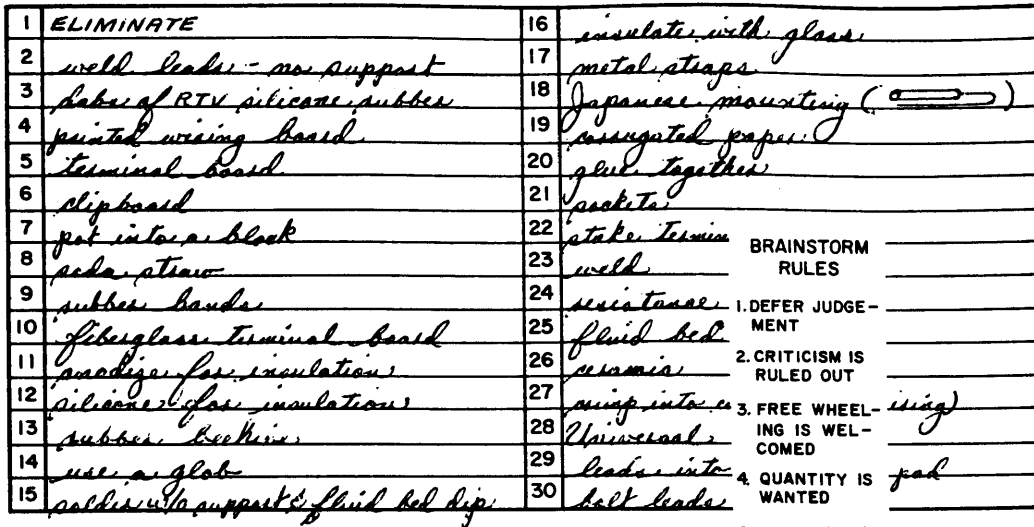 1 ELIMINATE
2 weld leads - no support
3 dabs of RTV silicone rubber
4 printed wiring board
5 terminal board
6 clipboard
7 pot into a block
8 soda straw
9 rubber bands
10 fiberglass terminal board
11 anodize for insulation
12 silicone for insulation
13 rubber beehive
14 use a glob
15 solder w/o support & fluid bed dip
16 insulate with glass
17 metal straps
18 Japanese mounting ( )
19 corrugated paper
20 glue together
21 sockets
22 stake termin
23 weld
24 resistance
25 fluid bed
26 ceramic
27 crimp into
28 Universal
29 leads into pad
30 bolt leads
BRAINSTORM
RULES
1. DEFER JUDGE-
MENT
2. CRITICISM IS
RULED OUT
3. FREE WHEEL-
ING IS WEL-
COMED
4. QUANTITY IS
WANTED